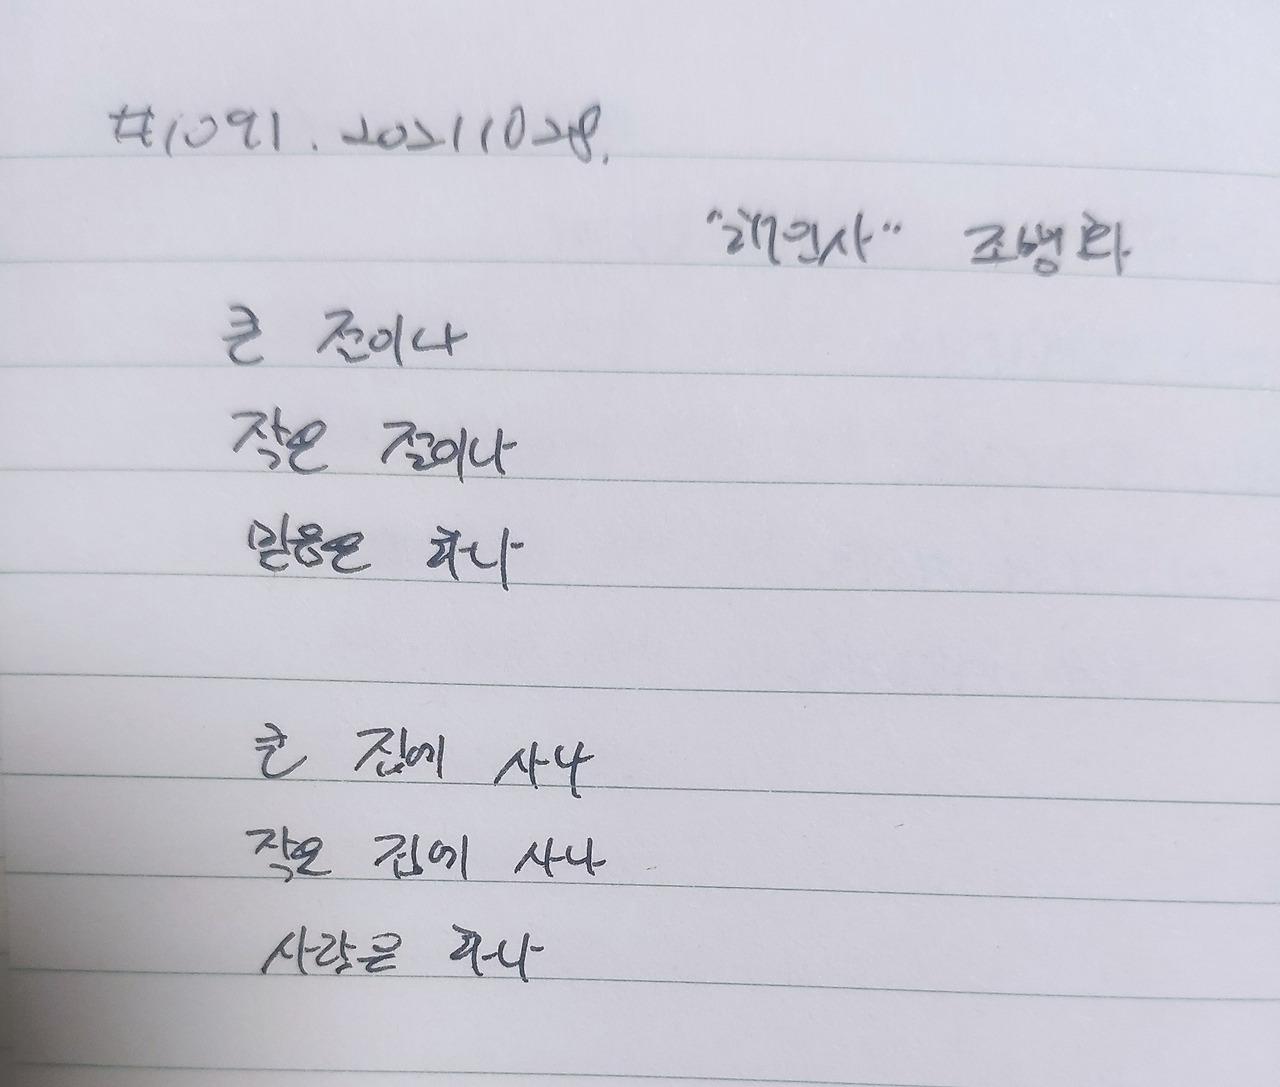 #1091. 20211028.
"해인사" 조병화
큰 절이나
작은 절이나
믿음은 하나
큰 집에 사나
작은 집에 사나
사람은 하나